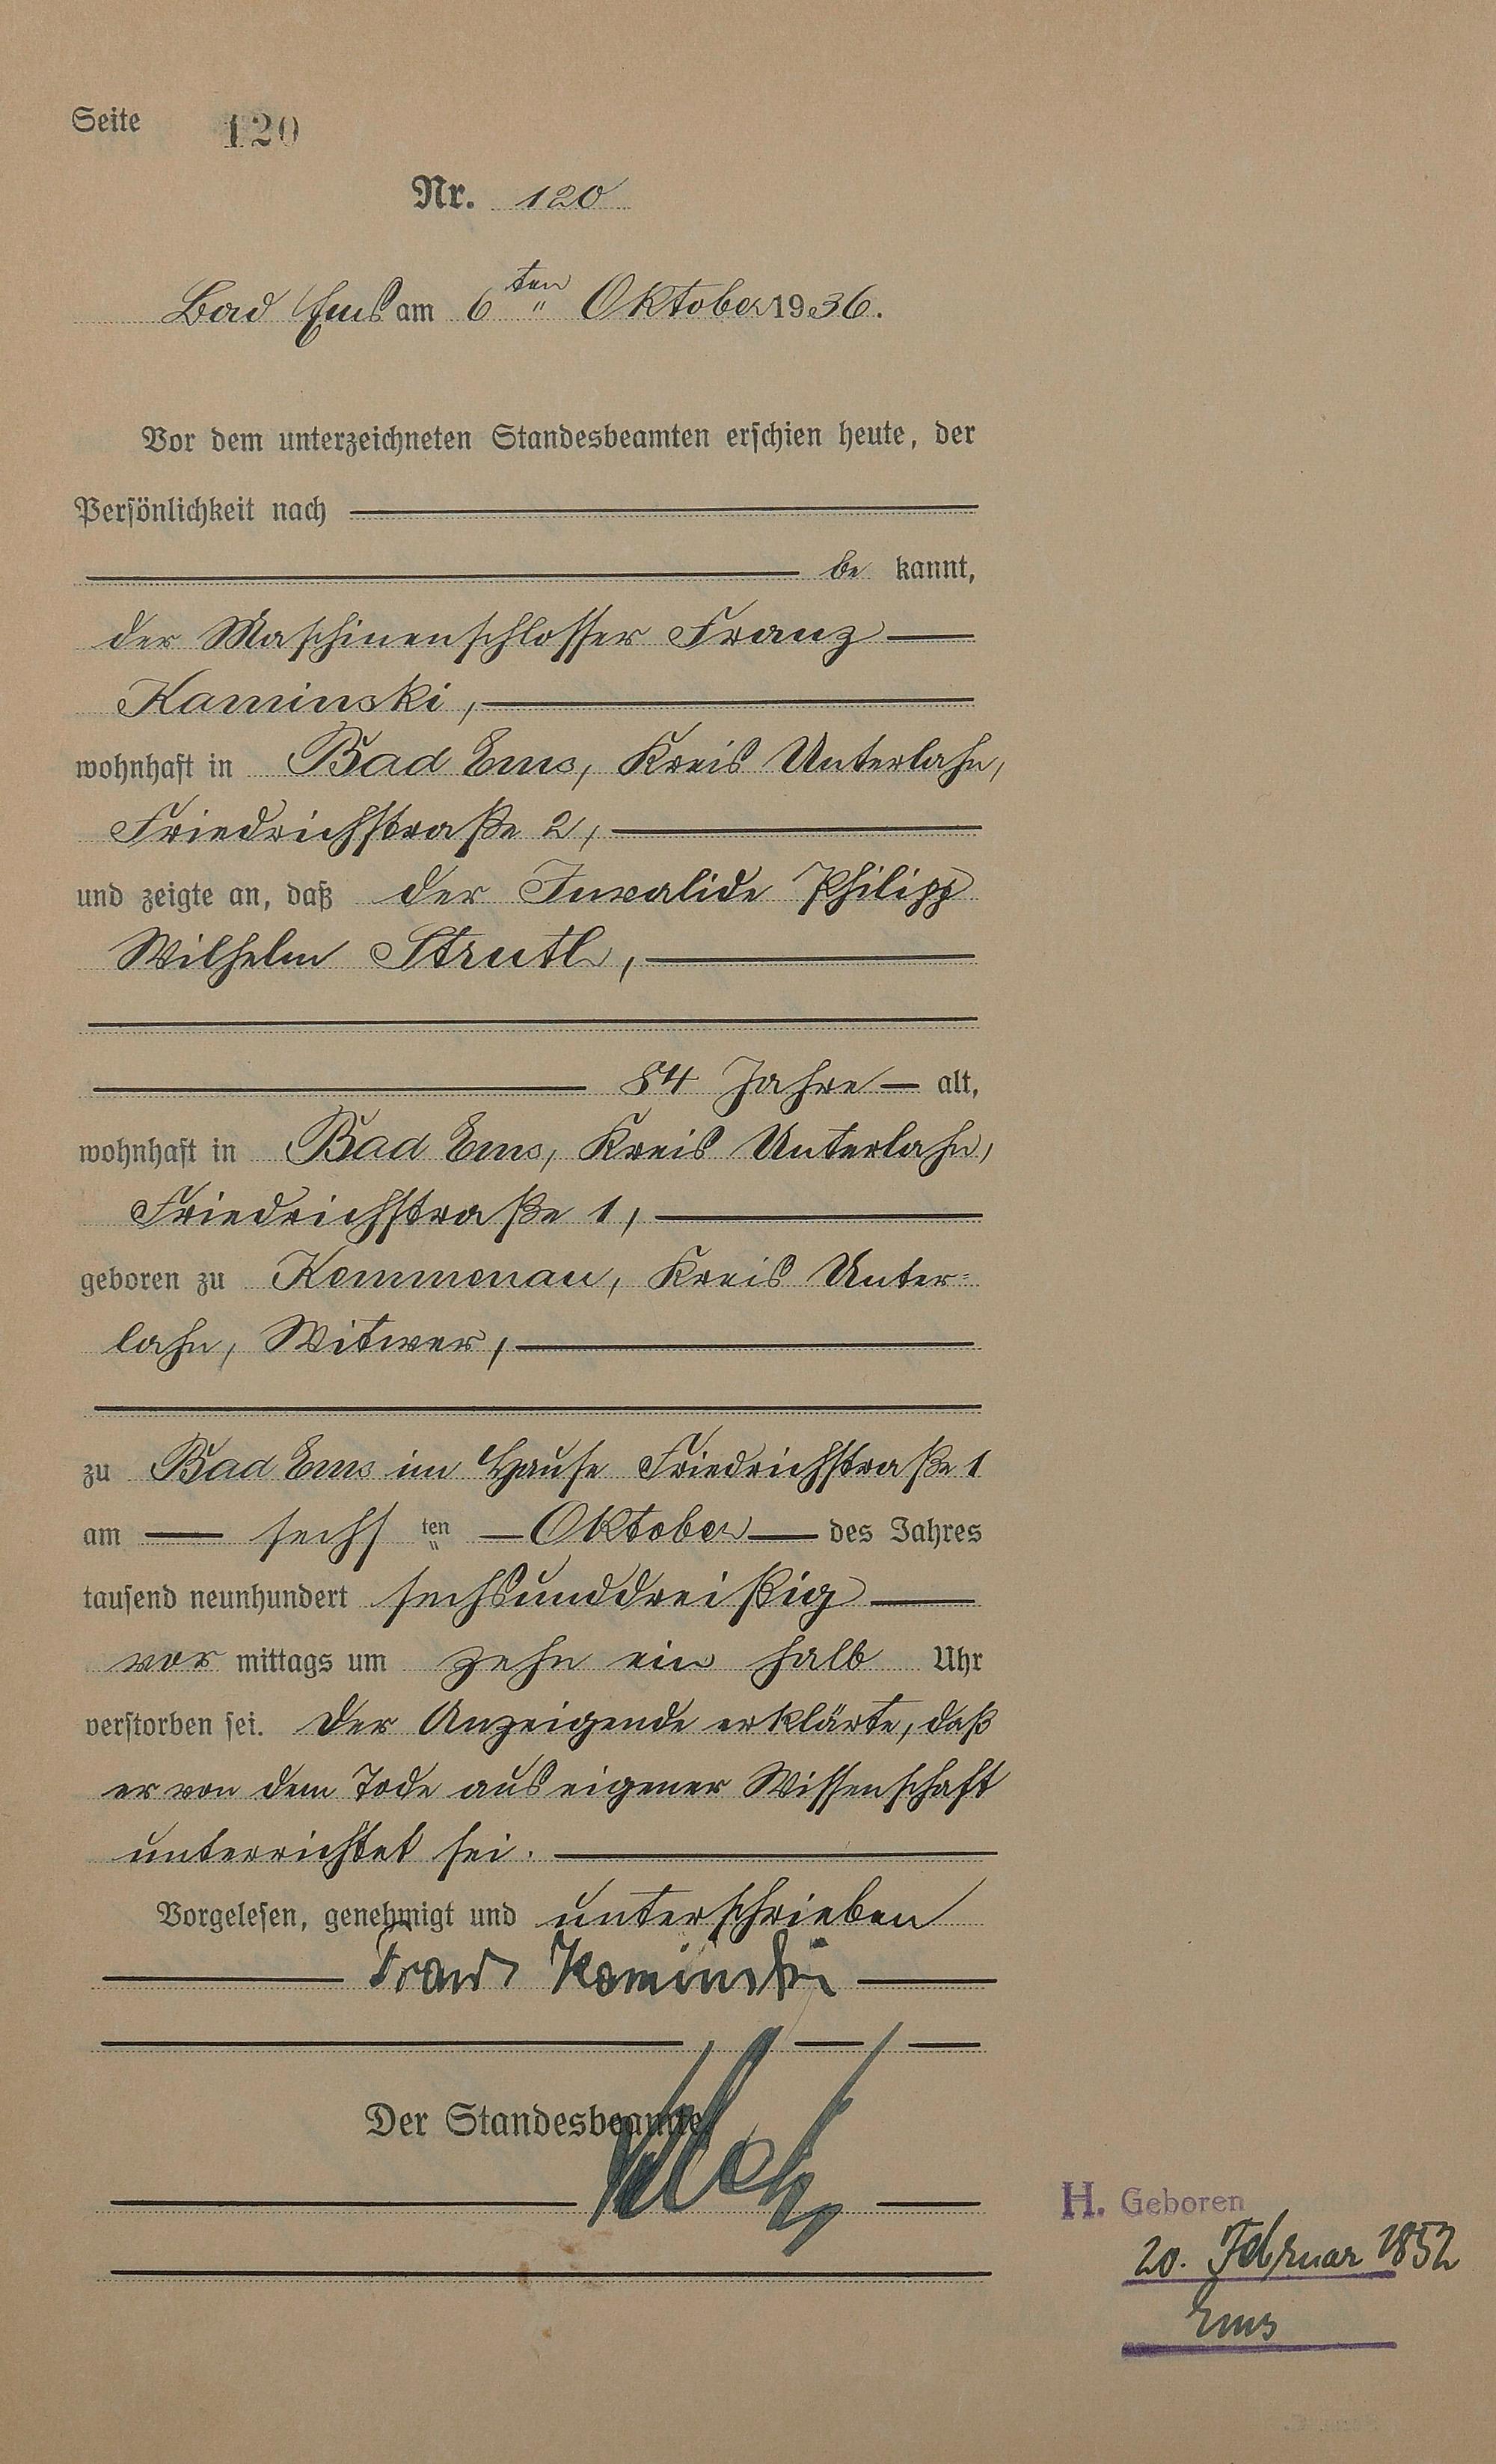 Seite 120
Nr. 120
Bad Ems am 6ten Oktober 1936.
Vor dem unterzeichneten Standesbeamten erschien heute, der
Persönlichkeit nach
be kannt,
der Maschinenschlosser Franz
Kaminski,
wohnhaft in Bad Ems, Kreis Unterlahn,
Friedrichstraße 2,
und zeigte an, daß der Invalide Philipp
Wilhelm Struth,
84 Jahre alt,
wohnhaft in Bad Ems, Kreis Unterlahn,
Friedrichstraße 1,
geboren zu Kemmenau, Kreis Unter-
lahn, Witwer,
zu Bad Ems im Hause Friedrichstraße 1
am sechsten Oktober des Jahres
tausend neunhundert sechsunddreißig
vor mittags um zehn ein halb Uhr
verstorben sei. Der Anzeigende erklärte, daß
er von dem Tode aus eigener Wissenschaft
unterrichtet sei.
Vorgelesen, genehmigt und unterschrieben
Franz Kaminski
Der Standesbeamte
H. Geboren
20. Februar 1852
Ems